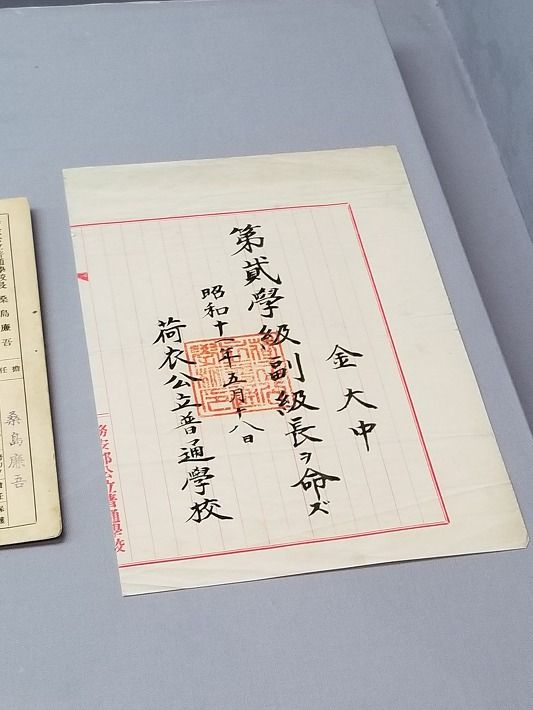 金大中
第貳學級副級長ヲ命ズ
昭和十一年五月十八日
荷衣公立普通學校
務安郡公立普通學校
普通學校長 桑島廉吾
擔任
桑島廉吾